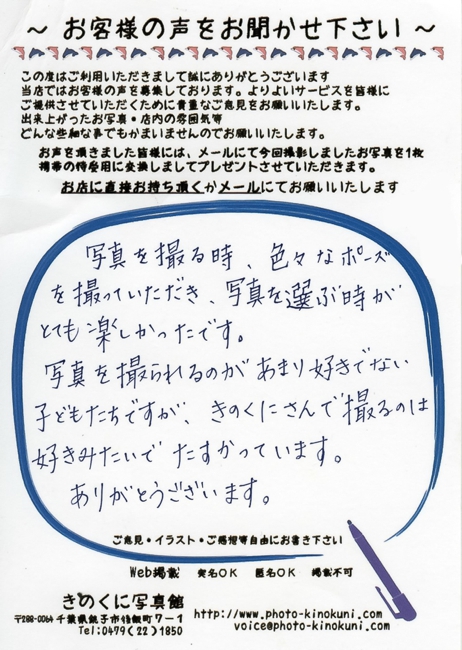 ～ お客様の声をお聞かせ下さい ～
この度はご利用いただきまして誠にありがとうございます
当店ではお客様の声を募集しております。よりよいサービスを皆様に
ご提供させていただくために貴重なご意見をお願いいたします。
出来上がったお写真・店内の雰囲気等
どんな些細な事でもかまいませんのでお願いいたします。
お声を頂きました皆様には、メールにて今回撮影しましたお写真を1枚
携帯の待受用に変換しましてプレゼントさせていただきます。
お店に直接お持ち頂くかメールにてお願いいたします
写真を撮る時、色々なポーズ
を撮っていただき、写真を選ぶ時が
とても楽しかったです。
写真を撮られるのがあまり好きでない
子どもたちですが、きのくにさんで撮るのは
好きみたいで たすかっています。
ありがとうございます。
ご意見・イラスト・ご感想等自由にお書き下さい
Web掲載 実名OK 匿名OK 掲載不可
きのくに写真館
〒288-0064 千葉県銚子市後飯町7－1
Tel:0479(22)1850
http://www.photo-kinokuni.com/
voice@photo-kinokuni.com